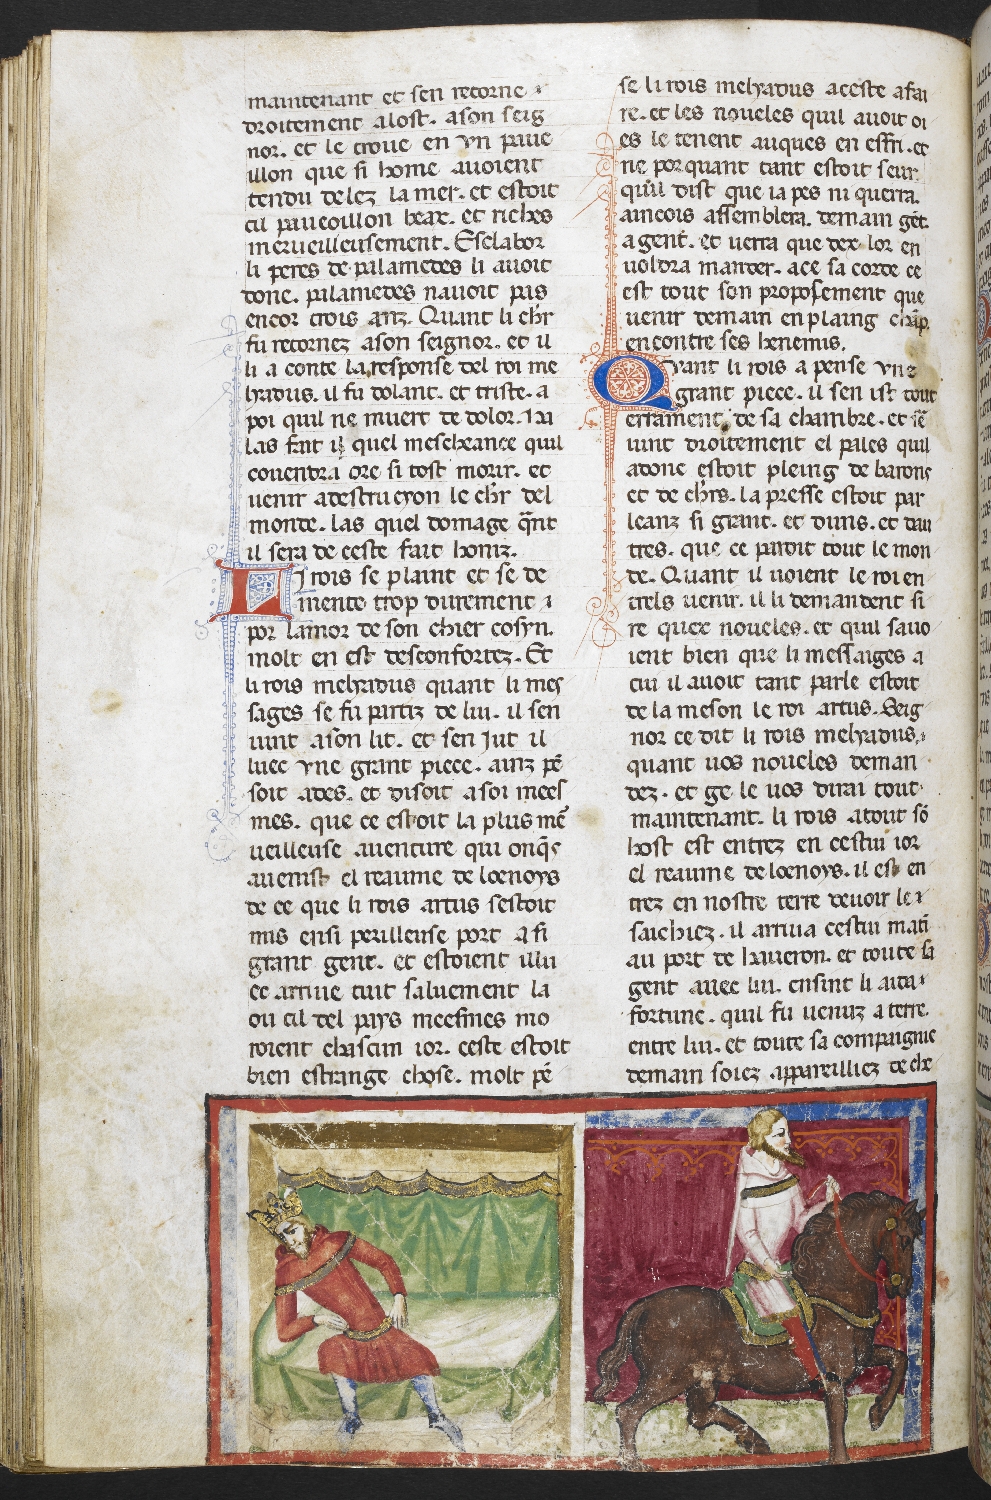 maintenant et sen retorne
droitement alost. ason seig
nor. et le troue en vn paue
illon que si home auoient
tendu delez la mer. et estoit
cil paueoillon beax. et riches
merueilleusement. Esclabor
li peres de palamedes li auoit
done. palamedes nauoit pas
encor trois anz. Quant li chr
fu retornez ason seignor. et il
li a conte la response del roi me
lyadus. il fu dolant. et triste. a
poi quil ne muert de dolor. Ha
las fait il quel mescheance quil
couendra ore si tost morir. et
uenir adestrucion le chr del
monde. las quel domage qnt
il sera de ceste fait honiz.
Li rois se plaint et se de
mente trop durement
por lamor de son chier cosyn.
molt en est desconfortez. Et
li rois melyadus quant li mes
sages se fu partiz de lui. il sen
uint ason lit. et sen jut il
luec vne grant piece. ainz pe
soit ades. et disoit asoi mees
mes. que ce estoit la plus me
ueilleuse auenture qui onqs
auenist el reaume de loenoys
de ce que li rois artus sestoit
mis ensi perilleuse port a si
grant gent. et estoient illu
ec arriue tuit saluement la
ou cil del pays meesmes mo
roient chascun ior. ceste estoit
bien estrange chose. molt pe
se li rois melyadus aceste afai
re. et les noueles quil auoit oi
es le tenent auques en effri. et
ne por quant tant estoit seur
quil dist que ia pes ni querra.
ainçois assemblera. demain get
agent. et uerra que dex lor en
uoldra mander. ace sa corde ce
est tout son proposement que
uenir demain en plaing champ
encontre ses henemis.
Quant li rois a pense vne
grant piece. il sen ist tout
erraument de sa chambre. et se
uint droitement el pales quil
adonc estoit pleing de barons
et de chrs. la presse estoit par
leanz si grant. et duns. et dau
tres. que ce paroit tout le mon
de. Quant il uoient le roi en
trels uenir. il li demandent si
re quex noueles. et quil sauo
ient bien que li messaiges a
cui il auoit tant parle estoit
de la meson le roi artus. Seig
nor ce dit li rois melyadus.
quant uos noueles deman
dez. et ge le uos dirai tout
maintenant. li rois atout so
host est entrez en cestui ior
el reaume de loenoys. il est en
trez en nostre terre deuoir le
saichiez. il arriua cestui mati
au port de laueron. et toute sa
gent auec lui. ensint li auia
fortune. quil fu uenuz a terre.
entre lui. et toute sa compaignie
demain soiez appareilliez de che